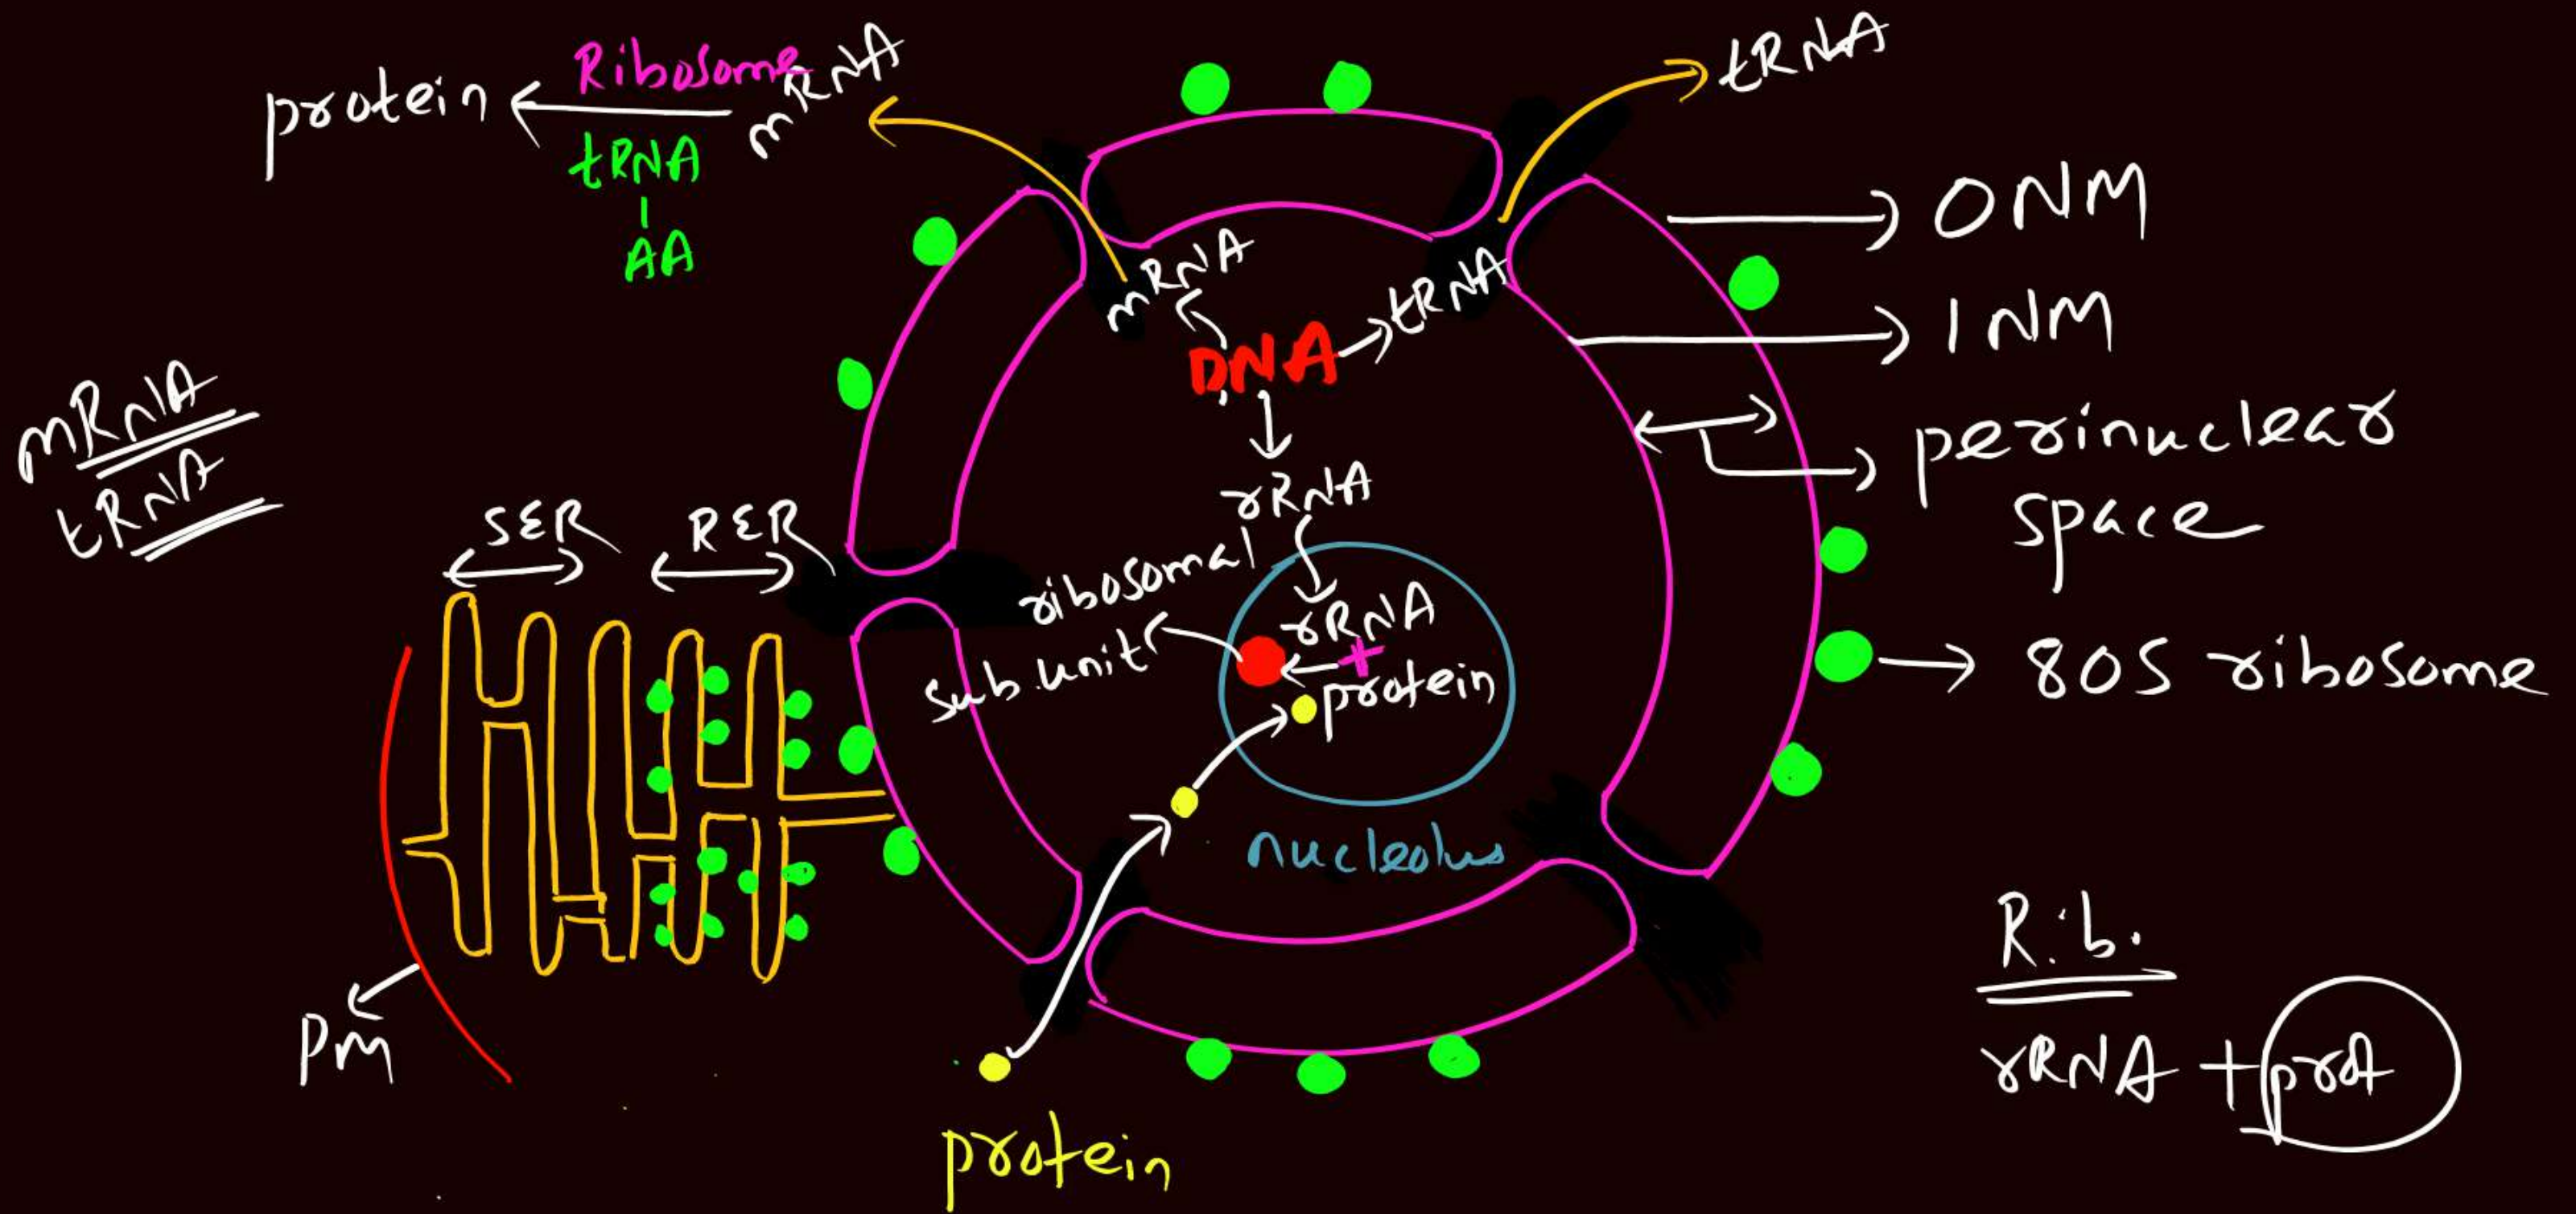 protein
Ribosome
mRNA
tRNA
AA
tRNA
ONM
INM
perinuclear
space
80S ribosome
mRNA
tRNA
DNA
rRNA
ribosomal
sub.unit
rRNA
+
protein
nucleolus
mRNA
tRNA
SER
RER
PM
protein
Rib.
rRNA + prot